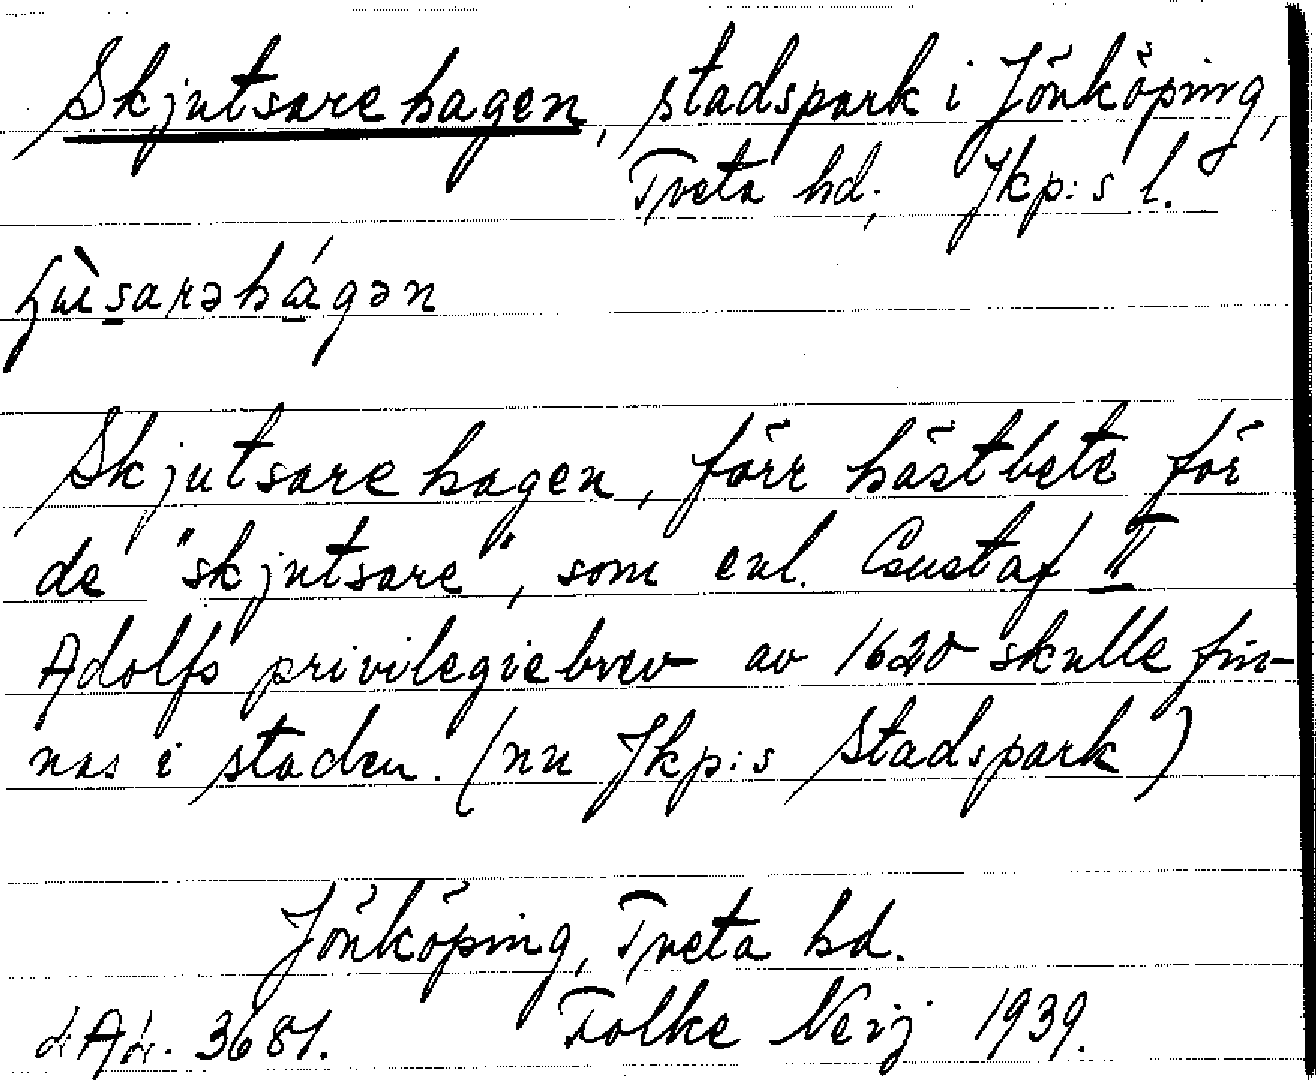 Skjutsarehagen, stadspark i Jönköping,
Tveta hd; Jkp:s l.
Skjutsarehagen, förr hästbete för
de "skjutsare", som enl. Gustaf II
Adolfs privilegiebrev av 1620 skulle fin-
nas i staden. (nu Jkp:s Stadspark)
Jönköping, Tveta hd.
3681. Folke Neij 1939.